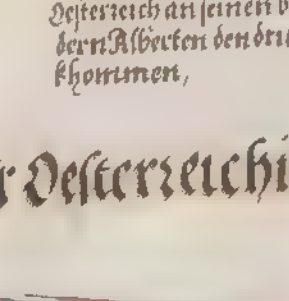 Oesterreich an seinen b
dern Alberten den dri
khommen,
r Oesterreichi